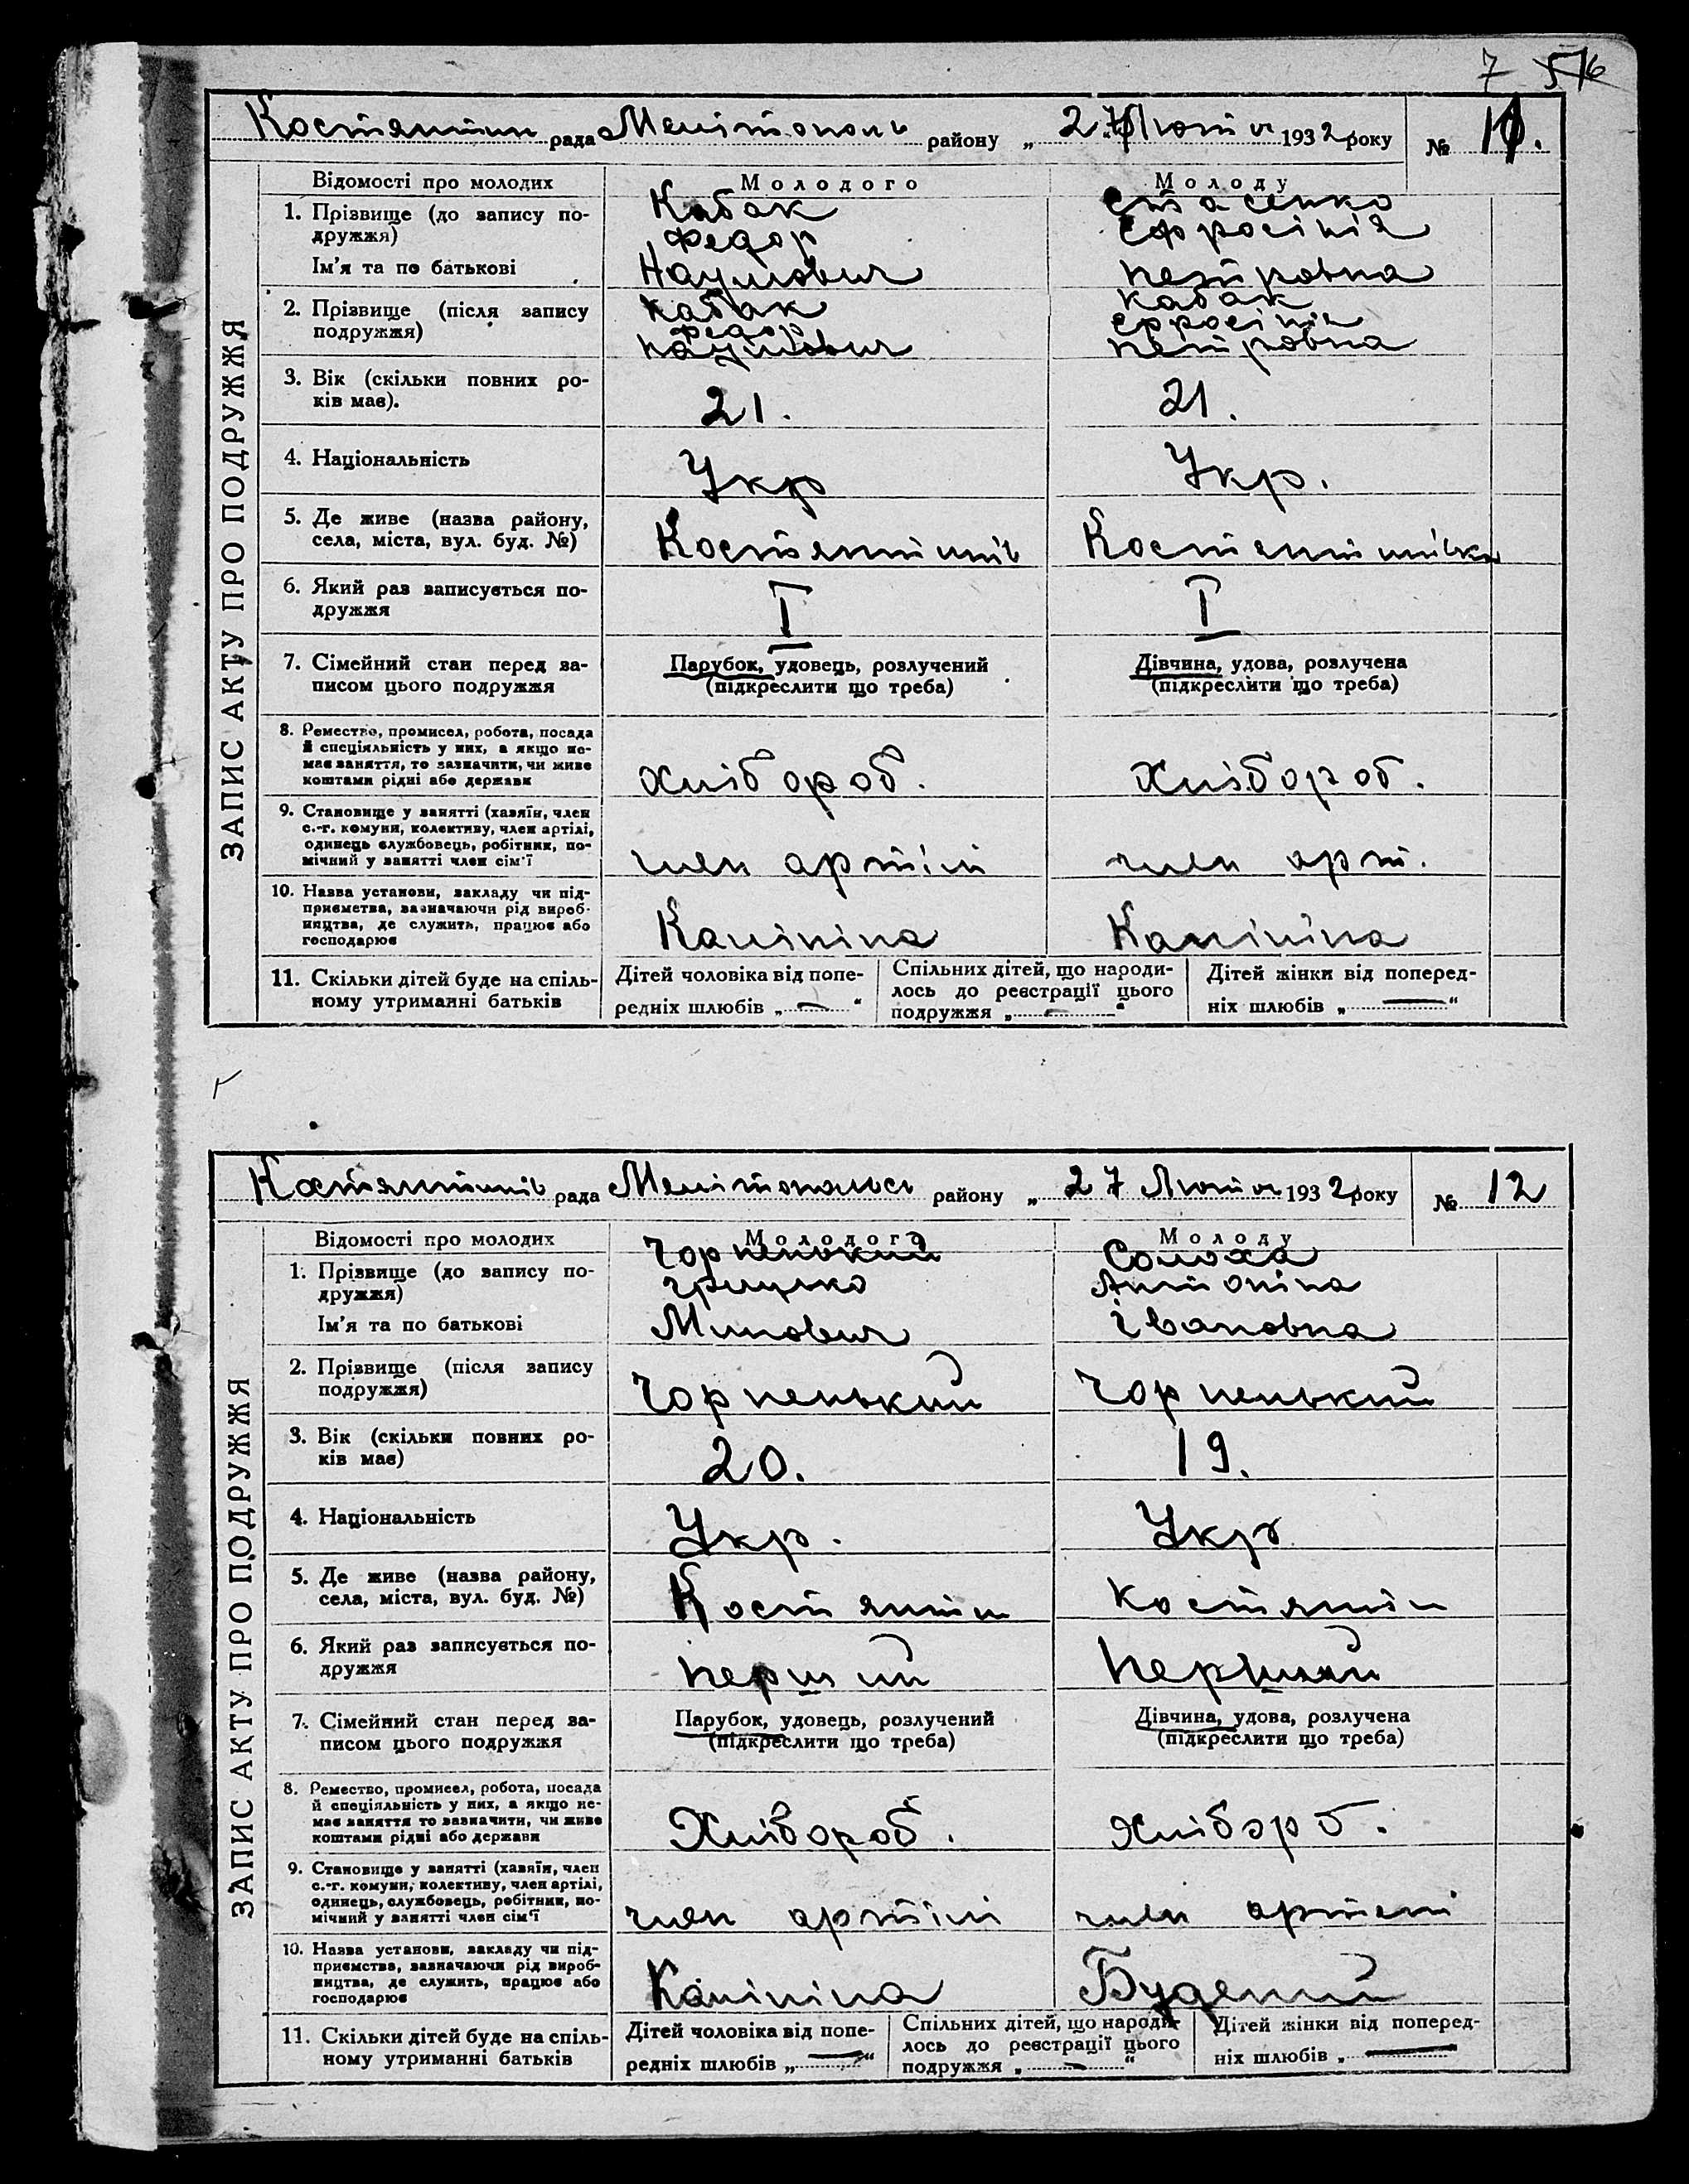 7 516
Костянтин рада Мелітополь району „ 27 Лютня 1932 року № 11.
ЗАПИС АКТУ ПРО ПОДРУЖЖЯ
Відомості про молодих Молодого Молоду
1. Прізвище (до запису по- Кабак Стасенко
дружжя) Федор Єфросінія
Ім'я та по батькові Наумович Петровна
2. Прізвище (після запису Кабак Кабак
подружжя) Федор Єфросінія
Наумович Петровна
3. Вік (скільки повних ро-
ків має). 21. 21.
4. Національність Укр Укр.
5. Де живе (назва району,
села, міста, вул. буд. №) Костянтинів Костянтинівка
6. Який раз записується по-
дружжя I I
7. Сімейний стан перед за- Парубок, удовець, розлучений Дівчина, удова, розлучена
писом цього подружжя (підкреслити що треба) (підкреслити що треба)
8. Ремество, промисел, робота, посада
й спеціяльність у них, а якщо не-
має заняття, то зазначити, чи живе
коштами рідні або держави хлібороб. хлібороб.
9. Становище у занятті (хазяїн, член
с.-г. комуни, колективу, член артілі,
одинець службовець, робітник, по-
мічний у занятті член сім'ї член артілі член арт.
10. Назва установи, закладу чи під-
приємства, зазначаючи рід вироб-
ництва, де служить, працює або
господарює Калініна Калініна
11. Скільки дітей буде на спіль- Дітей чоловіка від попе- Спільних дітей, що народи- Дітей жінки від поперед-
ному утриманні батьків редніх шлюбів „ — “ лось до реєстрації цього ніх шлюбів „ — “
подружжя „ — “
Костянтинів рада Мелітопольсь району „ 27 Лютня 1932 року № 12
ЗАПИС АКТУ ПРО ПОДРУЖЖЯ
Відомості про молодих Молодого Молоду
1. Прізвище (до запису по- Чорненький Солоха
дружжя) Грицько Антоніна
Ім'я та по батькові Минович Івановна
2. Прізвище (після запису
подружжя) Чорненький Чорненький
3. Вік (скільки повних ро-
ків має) 20. 19.
4. Національність Укр. Укр
5. Де живе (назва району,
села, міста, вул. буд. №) Костянтин Костянтін
6. Який раз записується по-
дружжя перший перший
7. Сімейний стан перед за- Парубок, удовець, розлучений Дівчина, удова, розлучена
писом цього подружжя (підкреслити що треба) (підкреслити що треба)
8. Ремество, промисел, робота, посада
й спеціяльність у них, а якщо не-
має заняття то зазначити, чи живе
коштами рідні або держави Хлібороб. хліборб.
9. Становище у занятті (хазяїн, член
с.-г. комуни, колективу, член артілі,
одинець, службовець, робітник, по-
мічний у занятті член сім'ї член артілі член артелі
10. Назва установи, закладу чи під-
приємства, зазначаючи рід вироб-
ництва, де служить, працює або
господарює Калініна Буденний
11. Скільки дітей буде на спіль- Дітей чоловіка від попе- Спільних дітей, що народи- Дітей жінки від поперед-
ному утриманні батьків редніх шлюбів „ — “ лось до реєстрації цього ніх шлюбів „ —
подружжя „ — “